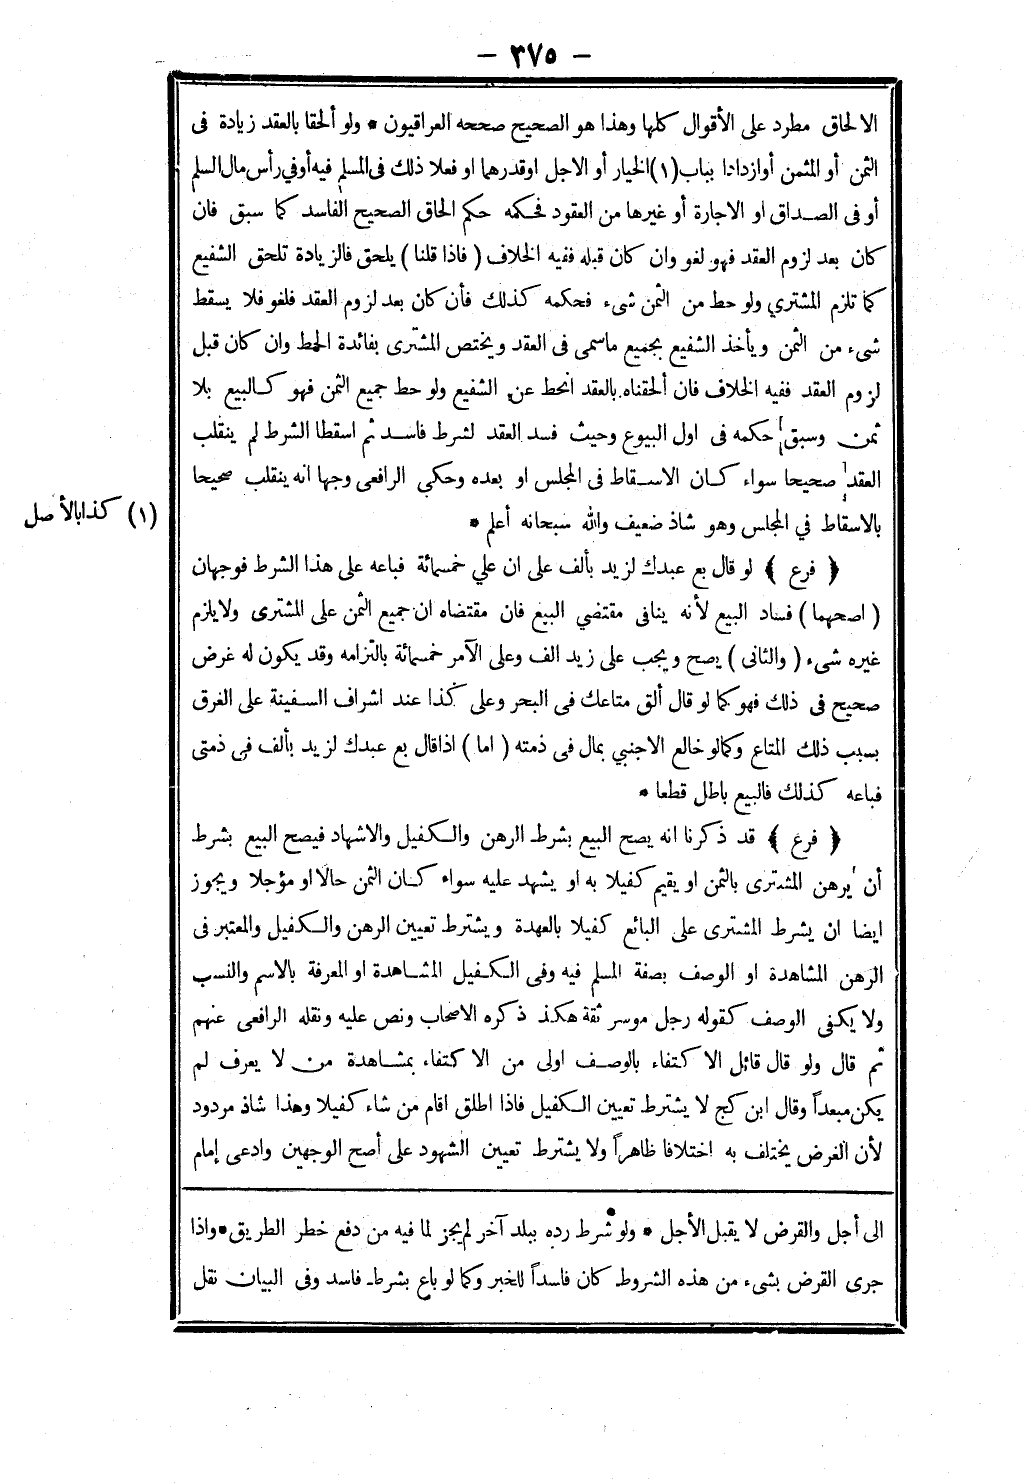 – ٣٧٥ –
الالحاق مطرد على الأقوال كلها وهذا هو الصحيح صححه العراقيون * ولو ألحقا بالعقد زيادة فى
الثمن أو المثمن أوازدادا بباب (١) الخيار أو الاجل اوقدرهما او فعلا ذلك فى المسلم فيه أو في رأس مال السلم
أو فى الصداق او الاجارة أو غيرها من العقود فحكمه حكم الحاق الصحيح الفاسد كما سبق فان
كان بعد لزوم العقد فهو لغو وان كان قبله ففيه الخلاف ( فاذا قلنا ) يلحق فالزيادة تلحق الشفيع
كما تلزم المشتري ولو حط من الثمن شىء فحكمه كذلك فأن كان بعد لزوم العقد فلغو فلا يسقط
شىء من الثمن ويأخذ الشفيع بجميع ماسمى فى العقد ويختص المشترى بفائدة الحط وان كان قبل
لزوم العقد ففيه الخلاف فان ألحقناه بالعقد انحط عن الشفيع ولو حط جميع الثمن فهو كالبيع بلا
ثمن وسبق حكمه فى اول البيوع وحيث فسد العقد لشرط فاسد ثم اسقطا الشرط لم ينقلب
العقد صحيحا سواء كان الاسقاط فى المجلس او بعده وحكى الرافعى وجها انه ينقلب صحيحا
بالاسقاط في المجلس وهو شاذ ضعيف والله سبحانه أعلم *
(١) كذا بالأصل
﴿ فرع ﴾ لو قال بع عبدك لزيد بألف على ان علي خمسمائة فباعه على هذا الشرط فوجهان
( اصحهما ) فساد البيع لأنه ينافى مقتضي البيع فان مقتضاه ان جميع الثمن على المشترى ولايلزم
غيره شىء ( والثانى ) يصح ويجب على زيد الف وعلى الآمر خمسمائة بالتزامه وقد يكون له غرض
صحيح فى ذلك فهو كما لو قال ألق متاعك فى البحر وعلى كذا عند اشراف السفينة على الغرق
بسبب ذلك المتاع وكمالو خالع الاجنبي بمال فى ذمته ( اما ) اذاقال بع عبدك لزيد بألف فى ذمتى
فباعه كذلك فالبيع باطل قطعا *
﴿ فرع ﴾ قد ذكرنا انه يصح البيع بشرط الرهن والكفيل والاشهاد فيصح البيع بشرط
أن يرهن المشترى بالثمن او يقيم كفيلا به او يشهد عليه سواء كان الثمن حالا او مؤجلا ويجوز
ايضا ان يشرط المشترى على البائع كفيلا بالعهدة ويشترط تعيين الرهن والكفيل والمعتبر فى
الرهن المشاهدة او الوصف بصفة المسلم فيه وفى الكفيل المشاهدة او المعرفة بالاسم والنسب
ولا يكفى الوصف كقوله رجل موسر ثقة هكذ ذكره الاصحاب ونص عليه ونقله الرافعى عنهم
ثم قال ولو قال قائل الاكتفاء بالوصف اولى من الاكتفاء بمشاهدة من لا يعرف لم
يكن مبعداً وقال ابن كج لا يشترط تعيين الكفيل فاذا اطلق اقام من شاء كفيلا وهذا شاذ مردود
لأن الغرض يختلف به اختلافا ظاهراً ولا يشترط تعيين الشهود على أصح الوجهين وادعى إمام
الى أجل والقرض لا يقبل الأجل * ولو شرط رده ببلد آخر لم يجز لما فيه من دفع خطر الطريق * واذا
جرى القرض بشىء من هذه الشروط كان فاسداً للخبر وكما لو باع بشرط فاسد وفى البيان نقل